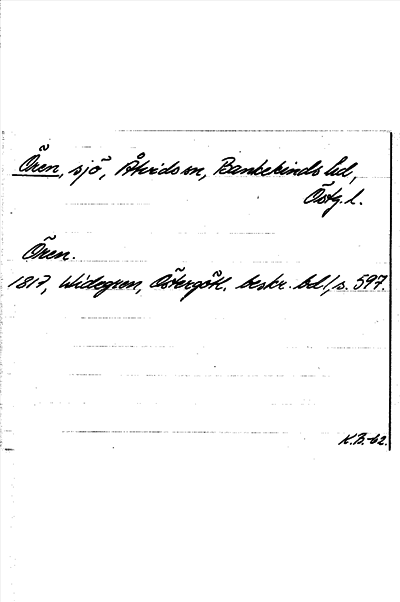 Ören, sjö, Åtvids sn, Bankekinds hd,
Östg. l.
Ören.
1817, Widegren, Östergötl. beskr. bd 1, s. 597.
K.B.-62.